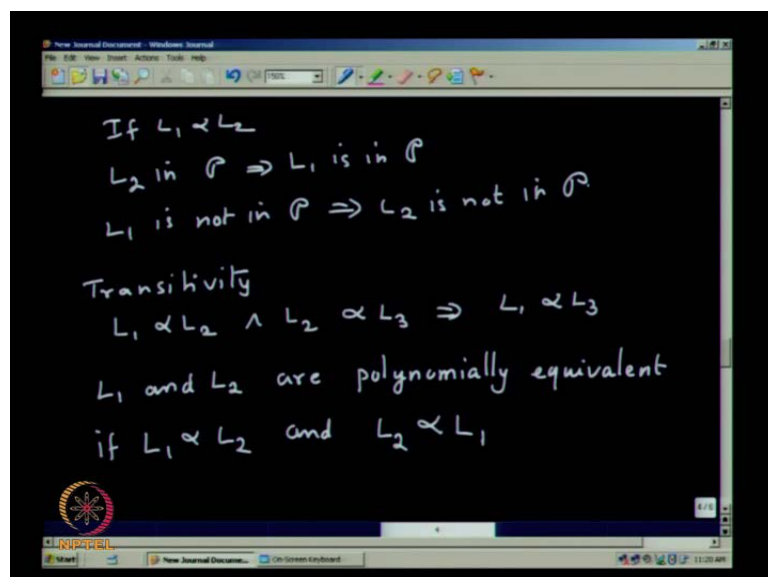 New Journal Document - Windows Journal
File Edit View Insert Actions Tools Help
150%
If L₁ ∝ L₂
L₂ in P ⇒ L₁ is in P
L₁ is not in P ⇒ L₂ is not in P.
Transitivity
L₁ ∝ L₂ ∧ L₂ ∝ L₃ ⇒ L₁ ∝ L₃
L₁ and L₂ are polynomially equivalent
if L₁ ∝ L₂ and L₂ ∝ L₁
4/6
4
NPTEL
Start New Journal Docume... On-Screen Keyboard 11:20 AM